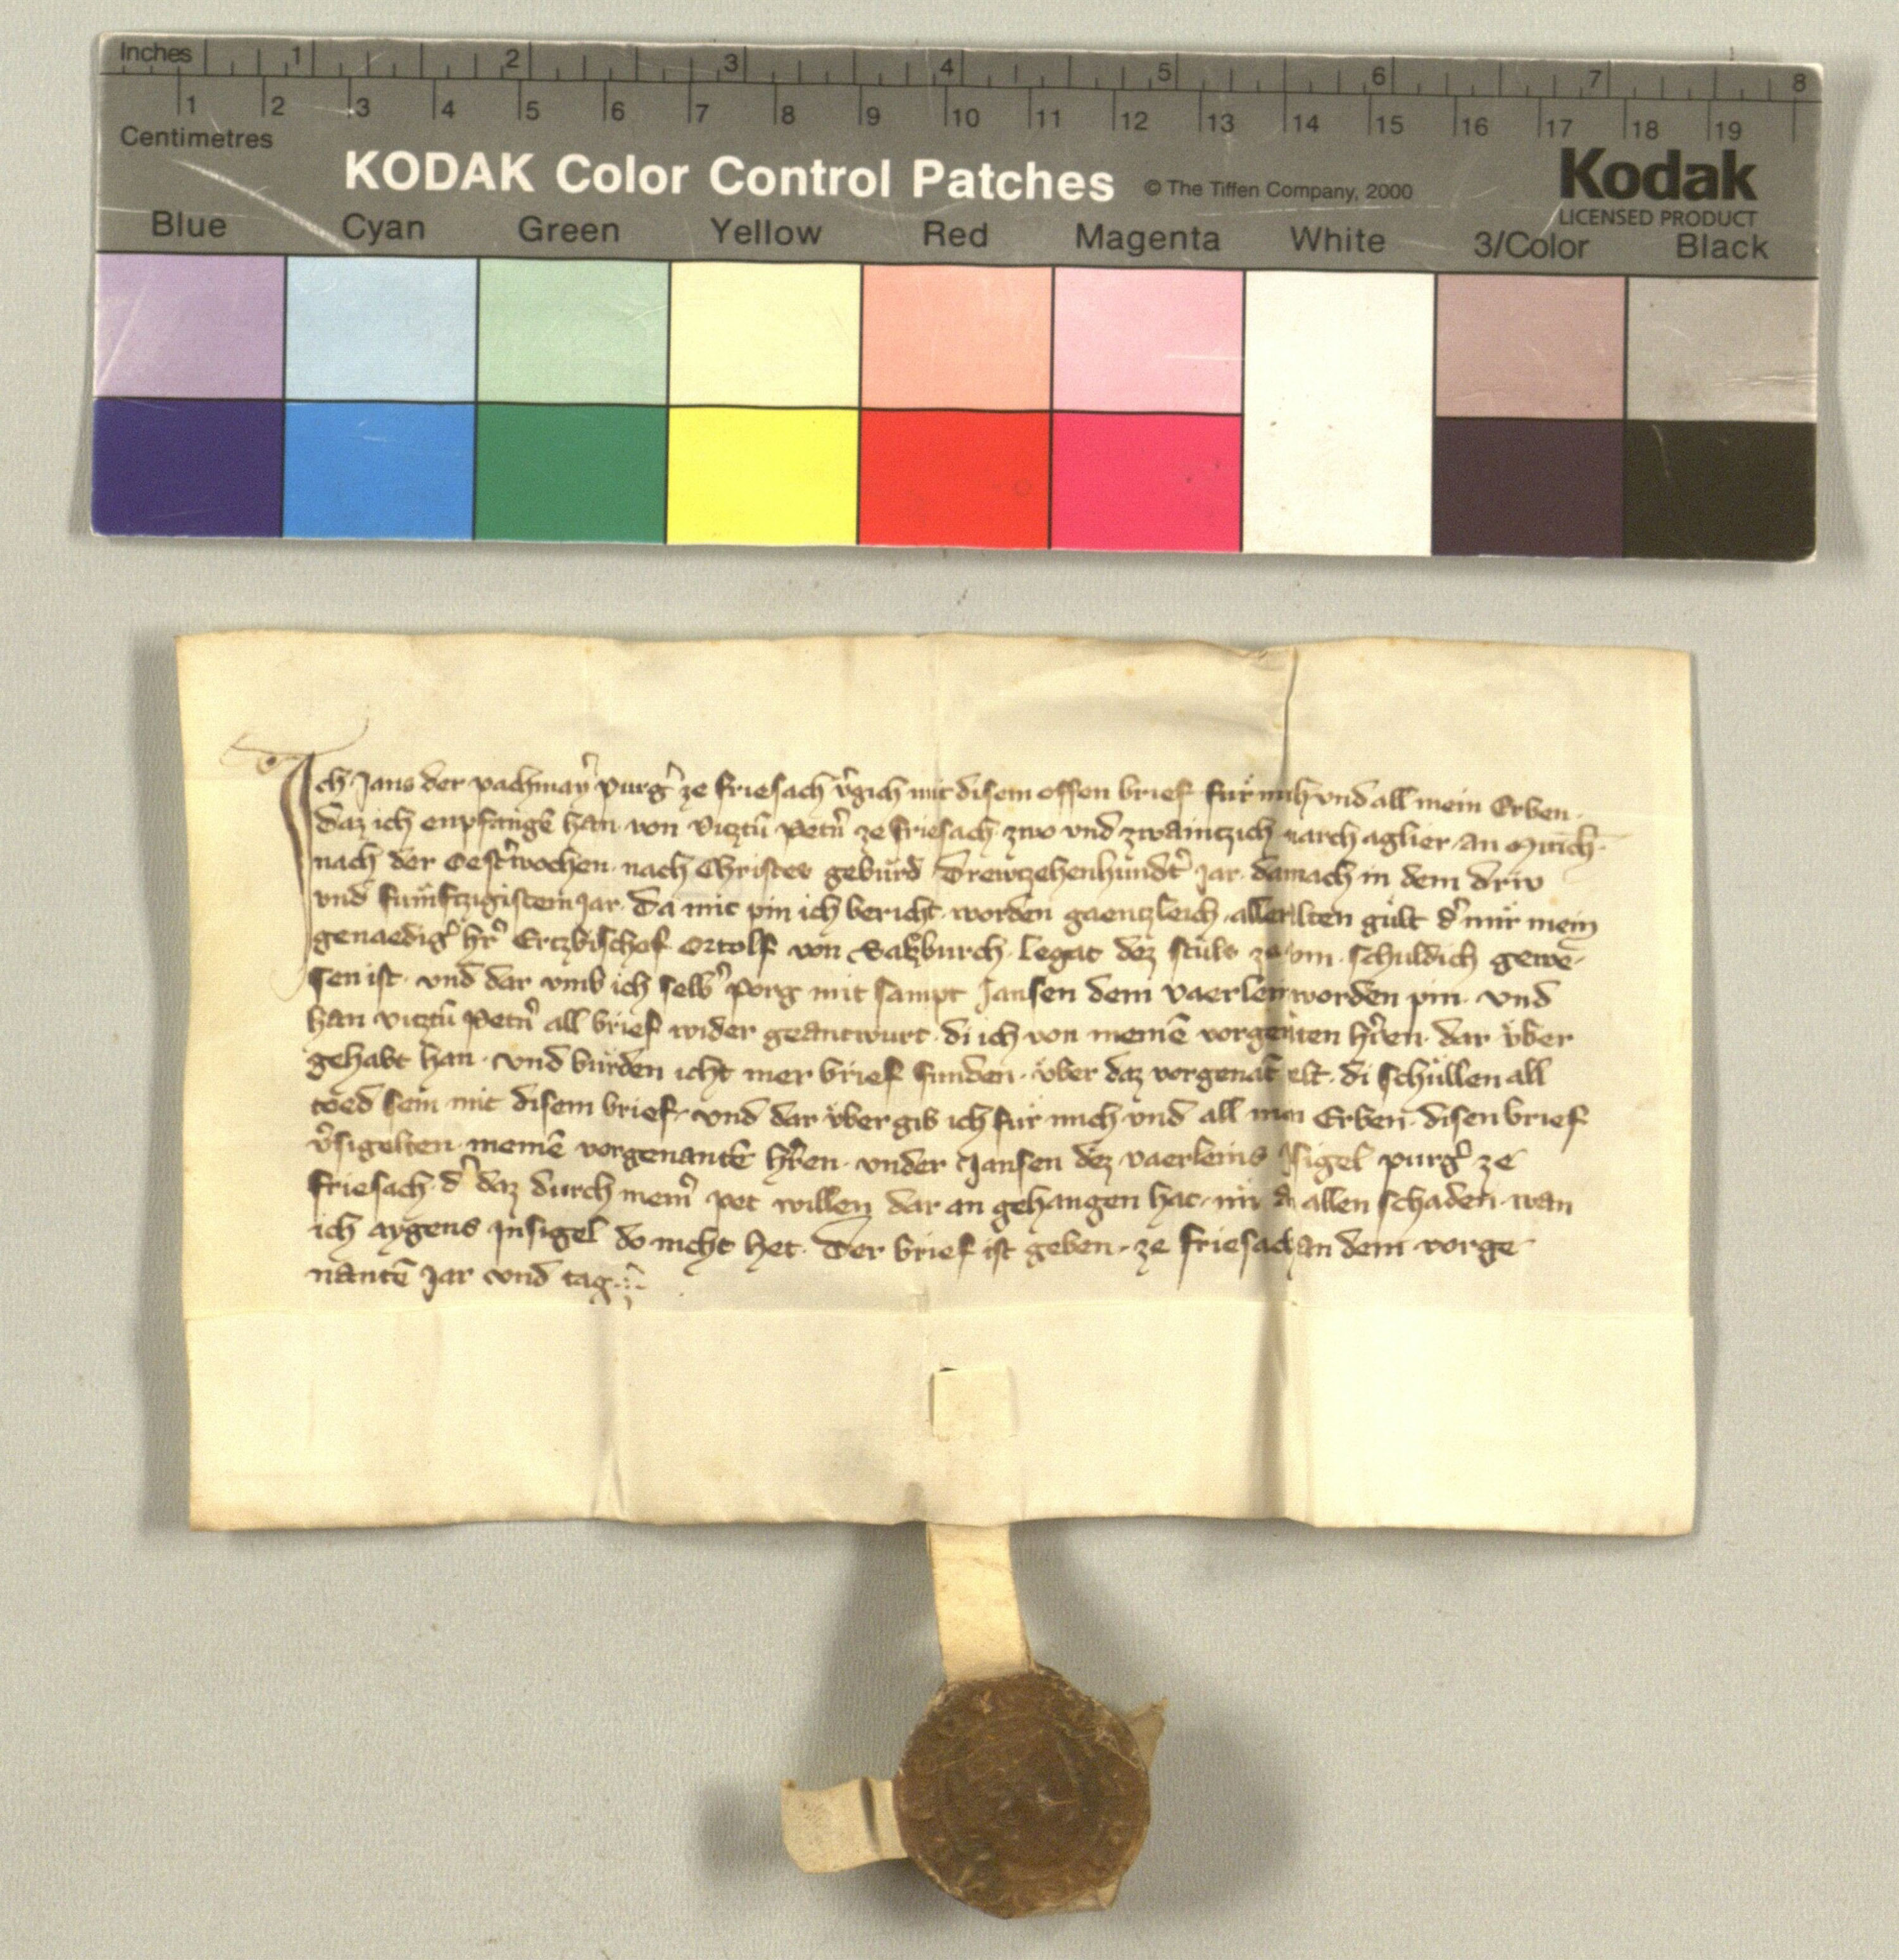 Inches 1 2 3 4 5 6 7 8
1 2 3 4 5 6 7 8 9 10 11 12 13 14 15 16 17 18 19
Centimetres
KODAK Color Control Patches © The Tiffen Company, 2000 Kodak
LICENSED PRODUCT
Blue Cyan Green Yellow Red Magenta White 3/Color Black
Ich Jans der pachmayr̾ purg̾ ze friesach v̾gich mit disem offen brief fuͤr mich vnd all mein Erben.
daz ich enpfangē han von vitztū Petn̾ ze friesach zwo vnd zwaintzich march aglier an
nach der Oest̾wochen nach Christes gebuͤrd Drewtzehenhundt̾ Jar darnach in dem driv
vnd fuͤmftzigistem Jar. Da mit pin ich bericht worden gaentzleich aller gult d̾ mir mein
genaedig̾ hr̾ Ertzbischof Ortolf von Saltzburch legat dez stuͤls ze Rom schuldich gewe-
sen ist. vnd dar vmb ich selb̾ Porg mit sampt Jansen dem vaerlein worden pin. vnd
han vitztū Petn̾ all brief wider geantwurt. di ich von meinē vorgenten hr̾en dar vͤber
gehabt han. vnd wuͤrden icht mer brief funden. vͤber daz vorgenāt gelt. di schuͤllen all
toed sein mit disem brief. vnd dar vͤber gib ich fuͤr mich vnd all mein Erben disen brief
v̾sigelten meinē vorgenantē hr̾en. vnder Jansen dez vaerleins Insigel purg̾ ze
friesach. d̾ daz durch mein̾ pet willen dar an gehangen hat. im an allen schaden. wan
ich aygens Insigel do nicht het. Der brief ist geben. ze friesach an dem vorge
nantē Jar vnd tag.